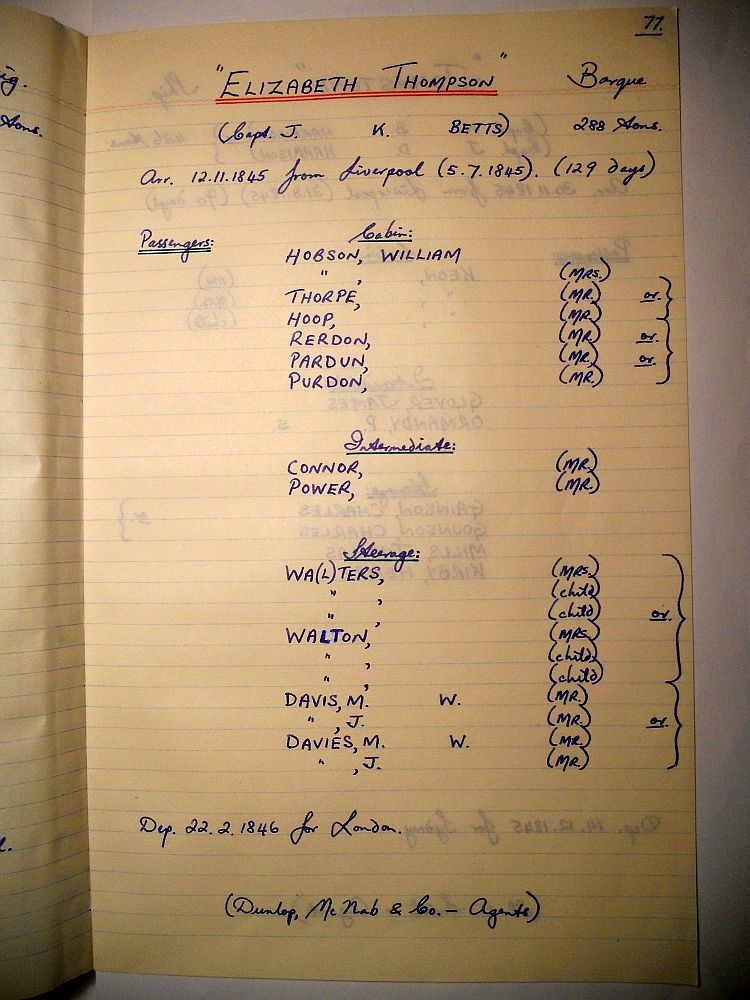 77.
"ELIZABETH THOMPSON" Barque
(Capt. J. K. BETTS) 288 tons.
Arr. 12.11.1845 from Liverpool (5.7.1845). (129 days)
Passengers: Cabin:
HOBSON, WILLIAM
" , (MRS.)
THORPE, (MR.) or.
HOOP, (MR.)
RERDON, (MR.) or.
PARDUN, (MR.) or.
PURDON, (MR.)
Intermediate:
CONNOR, (MR.)
POWER, (MR.)
Steerage:
WA(L)TERS, (MRS.)
" , (child)
" , (child) or.
WALTON, (MRS.)
" , (child)
" , (child)
DAVIS, M. W. (MR.)
" , J. (MR.) or.
DAVIES, M. W. (MR.)
" , J. (MR.)
Dep. 22.2.1846 for London.
(Dunlop, McNab & Co. – Agents)